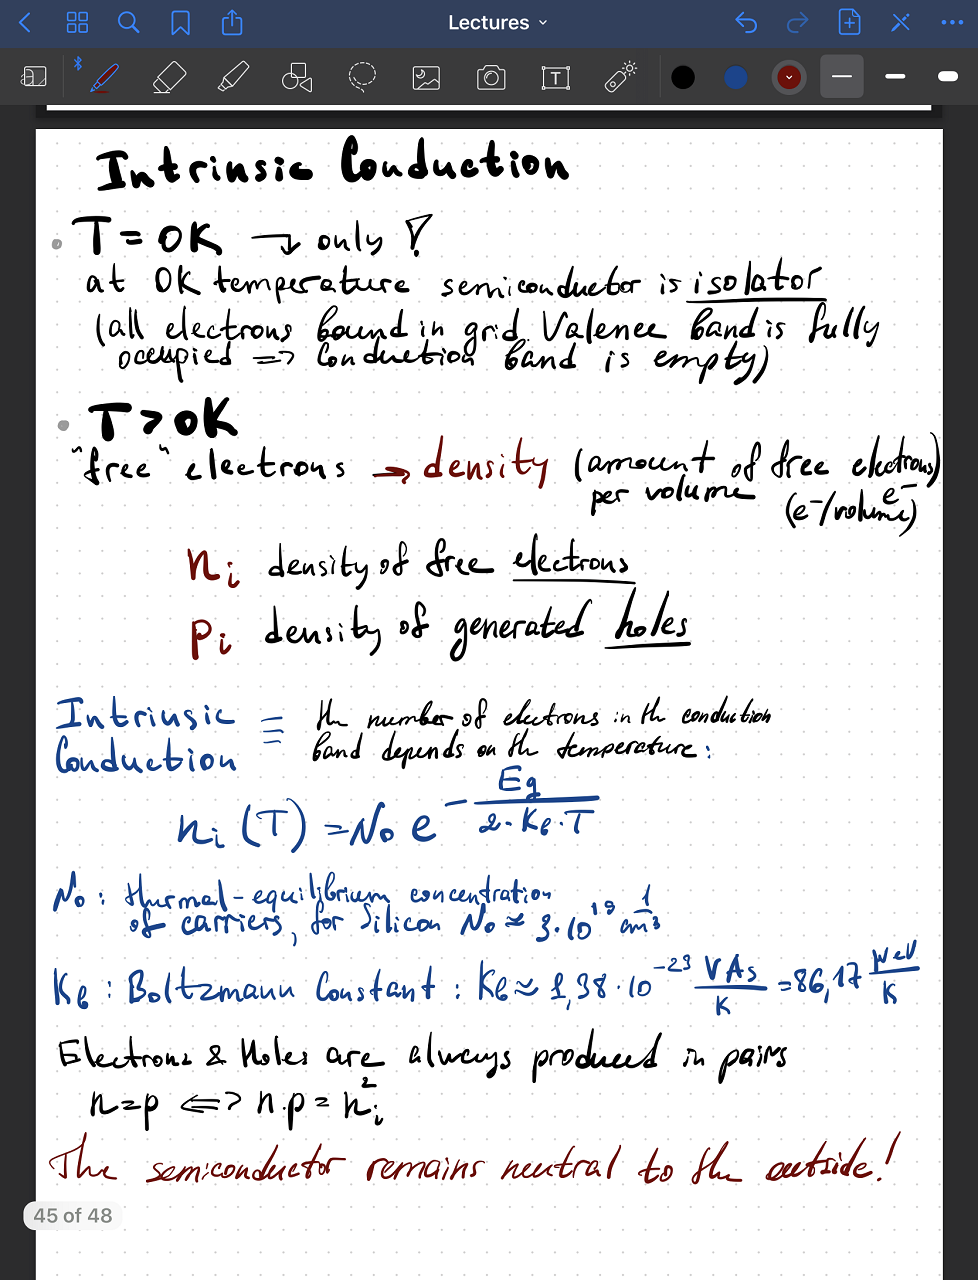 Lectures
Intrinsic Conduction
T = 0K → only
at 0K temperature semiconductor is isolator
(all electrons bound in grid. Valence band is fully
occupied => Conduction band is empty)
T > 0K
"free" electrons → density (amount of free electrons)
per volume e⁻
(e⁻/volume)
ni density of free electrons
pi density of generated holes
Intrinsic ≡ the number of electrons in the conduction
Conduction band depends on the temperature:
ni (T) = No e^(-Eg/(2·KB·T))
No: thermal-equilibrium concentration
of carriers, for Silicon No ≈ 3·10¹⁹ 1/cm³
KB: Boltzmann Constant: KB ≈ 1,38·10⁻²³ VAs/K = 86,17 µeV/K
Electrons & Holes are always produced in pairs
n=p <=> n·p = ni²
The semiconductor remains neutral to the outside!
45 of 48